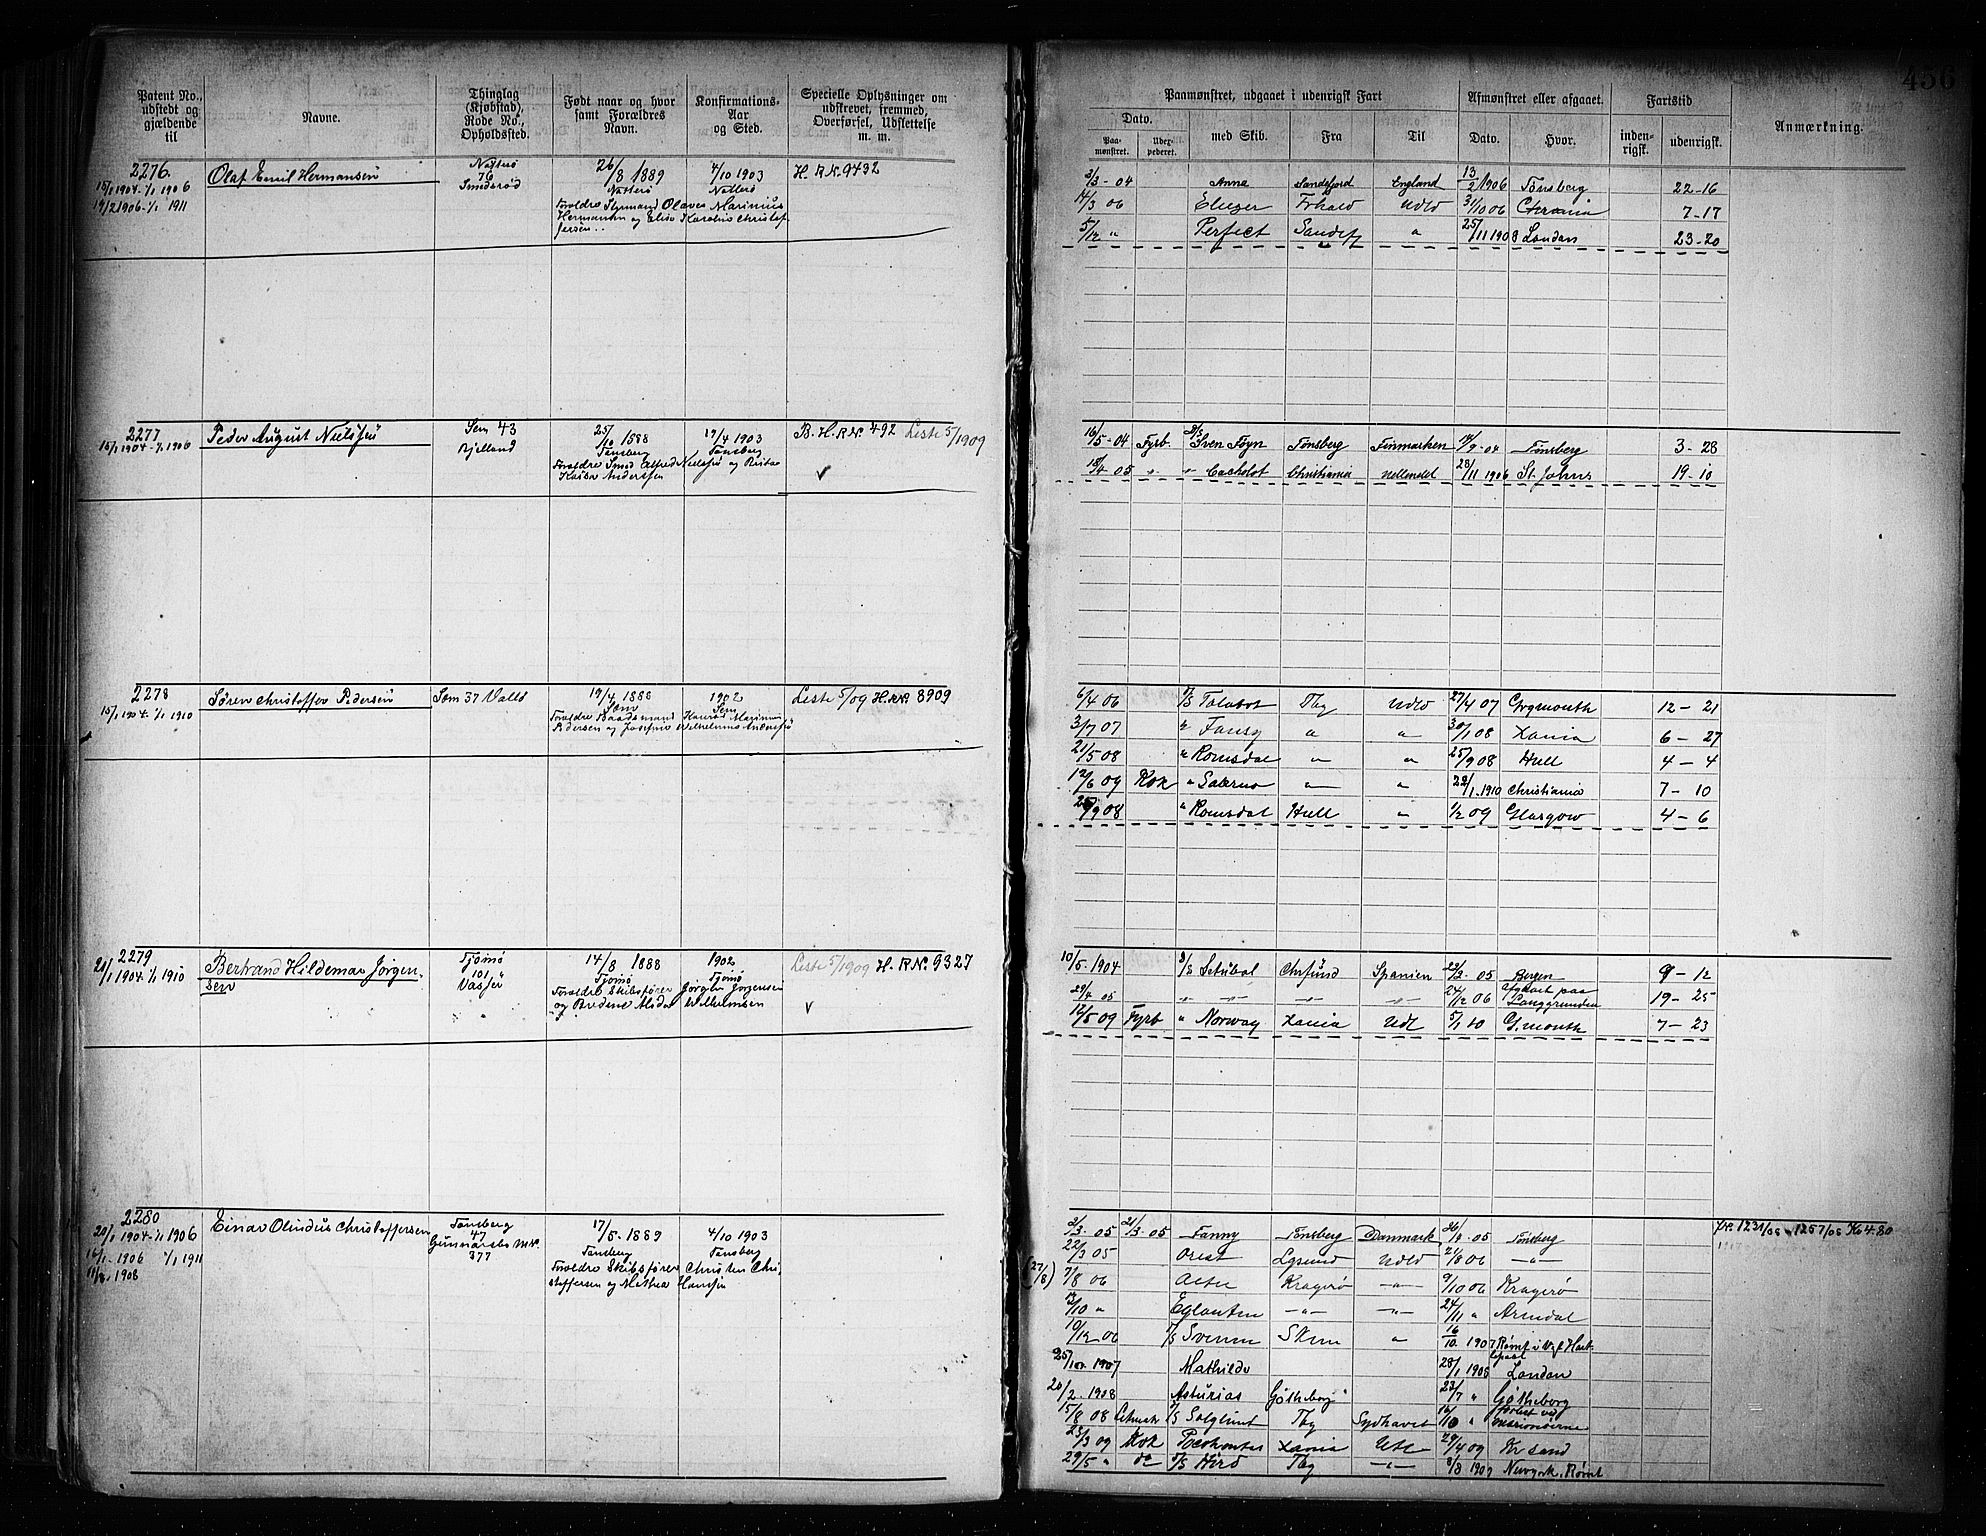 456
Patent No., udstedt og gjældende til
Navne.
Thinglag (Kjøbstad), Rode No., Opholdssted.
Født naar og hvor samt Forældres Navn.
Konfirmations-Aar og Sted.
Specielle Oplysninger om udskrevet, fremmed, Overførsel, Udslettelse m. m.
Paamønstret, udgaaet i udenrigsk Fart
Afmønstret eller afgaaet.
Fartstid
Anmærkning.
Dato.
Paamønstret.
med Skib.
Fra
Til
Dato.
Hvor.
indenrigsk.
udenrigsk.
2276.
15/1 1904-1/1 1906
19/2 1906-1/1 1911
Olaf Emil Hermansen
Nøtterø
76
Smidsrød
26/8 1889
Nøtterø
Forældre Styrmand Olaves Marinius
Hermansen og Elise Karoline Christof
fersen
4/10 1903
Nøtterø
H. R.N. 9432
2/3-04 Anna Sandefjord England 13/2 1906 Tønsberg 22-16
14/3 06 Eliezer Frhald Udld 31/10 06 Chrania 7-17
5/12 " Perfect Sandefj " 25/11 1908 London 23-20
2277
15/1 1904-1/1 1906
Peder August Nielsen
Sem 43
Bjelland
25/10 1888
Tønsberg
Forældre Smed Alfred Nielsen og
Andersen
19/4 1903
Tønsberg
B. H.R.N. 492 Liste 5/1909
16/5-04 Fyrb. D/S Sven Foyn Tønsberg Finmarken 19/9-04 Tønsberg 3-28
18/4 05 " " Cachelot Christiania 28/11 1906 St. Johns 19-10
2278
15/1 1904-1/1 1910
Søren Christoffer Pedersen
Sem 37 Vallø
19/4 1888
Sem
Forældre Baadsmand Konrad Marinius
Pedersen og Josefine Wilhelmine Andersen
1902
Sem
Liste 5/09 H.R.N. 8909
6/4 06 D/S Talabot Tbg Udld 27/4 07 Grgmouth 12-21
3/7 07 " Fansy " " 30/1 08 Xania 6-27
21/5 08 " Romsdal " " 25/9 08 Hull 4-4
12/6 09 Kok " Salerno " " 22/1 1910 Christiania 7-10
26/9 08 " Romsdal Hull " 1/2 09 Glasgow 4-6
2279
21/1 1904-1/1 1910
Bertrand Hildemar Jørgen-
sen
Tjømø
101
Vasser
14/8 1888
Tjømø
Forældre Skibsfører Jørgen Jørgensen
og Bredine Alida Wilhelmsen
1902
Tjømø
Liste 5/1909 H. R.N. 9327
10/5-1904 D/S Setubal Chrsund Spanien 22/3-05 Bergen 9-12
29/4 05 " " " " 24/12 06 Afgaaet paa
Langgrunden 19-25
12/5 09 Fyrb " Norway Xania Udl 5/1 10 G.mouth 7-23
2280
20/1 1904-1/1 1906
16/1-1906 1/1 1911
11/2 1908
Einar Olindus Christoffersen
Tønsberg
47
Gunnarsbø M.N.
377
17/5-1889
Tønsberg
Forældre Skibsfører Christen Chri-
stoffersen og Mathea Hansen
4/10 1903
Tønsberg
2/3-05 21/3-05 Fanny Tønsberg Danmark 26/4-05 Tønsberg
22/3 05 Orest Lysund Udld 2/8 06 -"-
(27/8) 7/8 06 Kragerø -"- 9/10 06 Kragerø
13/10 " Eglantin -"- -"- 24/11 " Arendal
10/12-06 D/S Svenn Skien " 16/10 1907 Rømt i West Hart-
lepool
25/10 1907 Mathilde 28/1 1908 London
20/2 1908 Asturias Gøtheborg " 23/7 " Gøtheborg
15/8 08 D/S Solglimt Tbg Sydhavet 16/10 " forlist ved
Marionøerne
23/3 09 Kok Pocohontas Xania Utl 29/4 09 Kr sand
29/5 " do D/S Hird Tbg -"- 8/8 1909 Newyork, Rømt